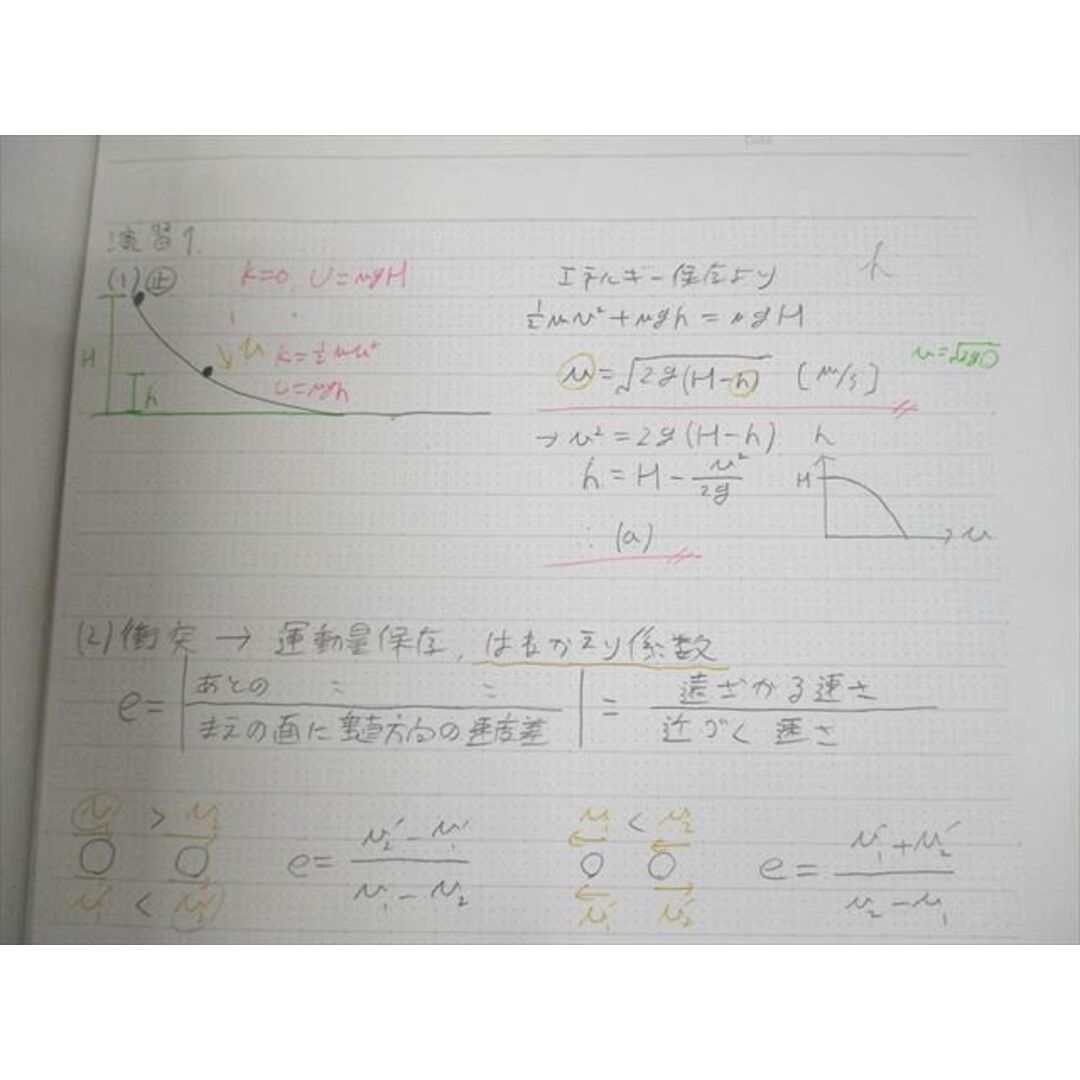 Date
演習1.
(1) 止 K=0, U=mgH
H
v
K=½mv²
U=mgh
h
エネルギー保存より
h
½mv²+mgh=mgH
v=√2g(H-h) [m/s]
→v²=2g(H-h)
h=H-v²/2g
∴(a)
h
H
v
(2)衝突→運動量保存, はねかえり係数
e=|あとの 〃 〃/まえの面に垂直方向の速度差|=遠ざかる速さ/近づく速さ
v₁ > v₂
e=v₂'-v₁'/v₁-v₂
v₁' < v₂'
v₁ < v₂
e=v₁'+v₂'/v₂-v₁
v₁' v₂'